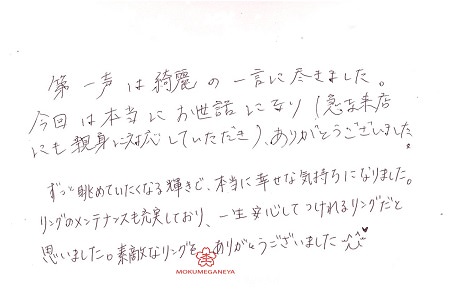 第一声は綺麗の一言に尽きました。
今回は本当にお世話になり(急な来店
にも親身に対応していただき)、ありがとうございました。
ずっと眺めていたくなる輝きで、本当に幸せな気持ちになりました。
リングのメンテナンスも充実しており、一生安心してつけれるリングだと
思いました。素敵なリングを ありがとうございました
MOKUMEGANEYA